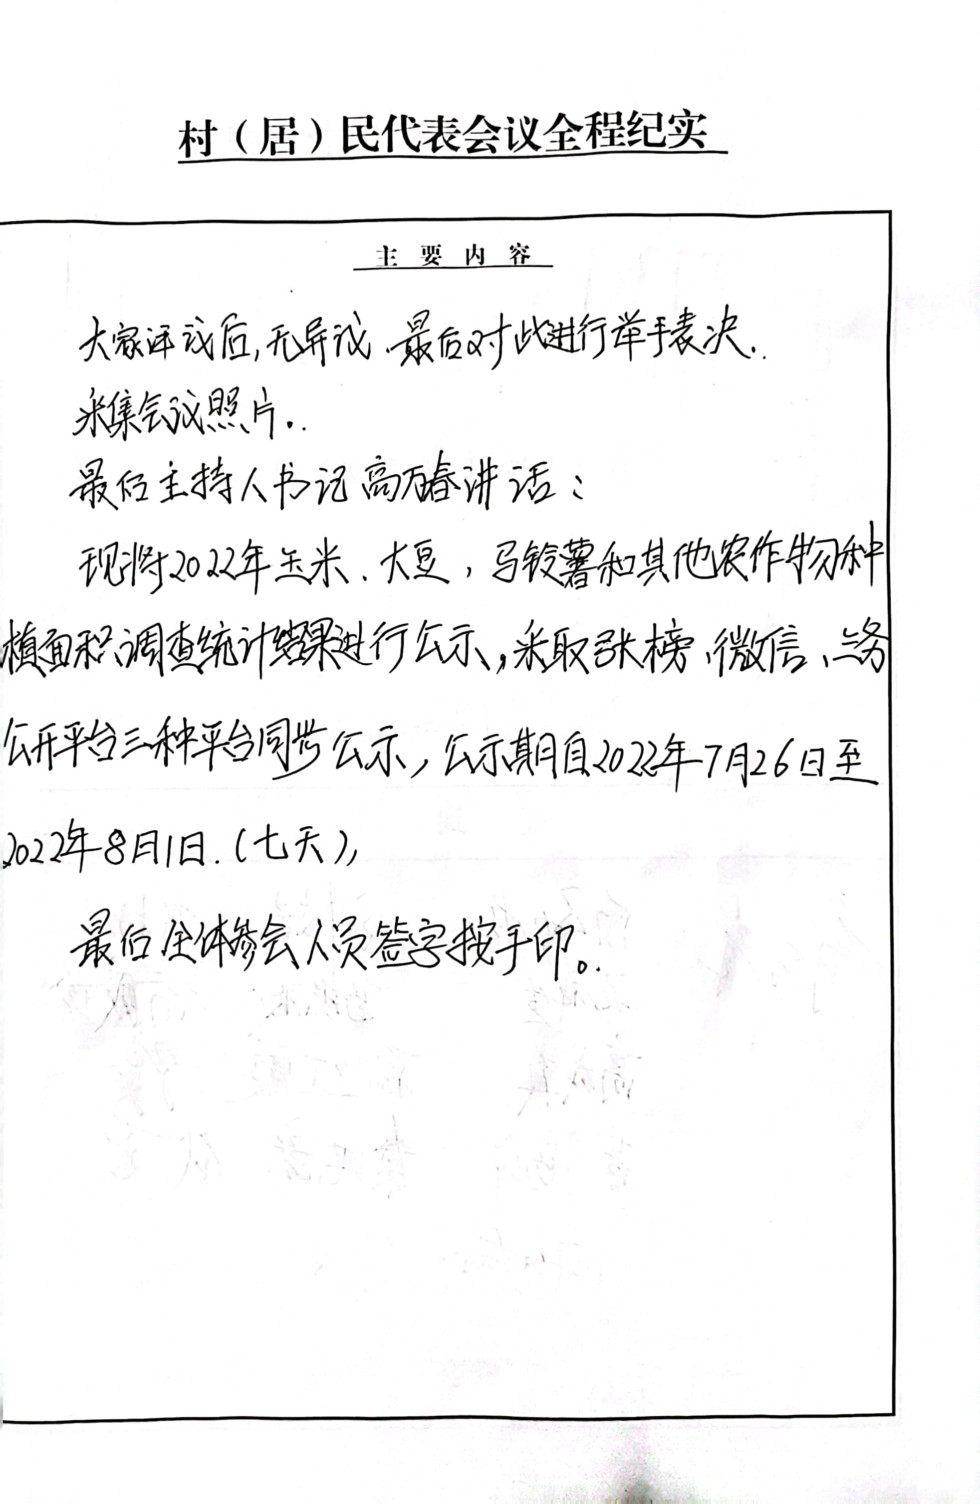 村（居）民代表会议全程纪实
主要内容
大家评议后,无异议.最后对此进行举手表决.
采集会议照片.
最后主持人书记高万春讲话：
现将2022年玉米、大豆,马铃薯和其他农作物种
植面积调查统计结果进行公示,采取张榜、微信、三务
公开平台三种平台同步公示,公示期自2022年7月26日至
2022年8月1日.(七天),
最后全体参会人员签字按手印。